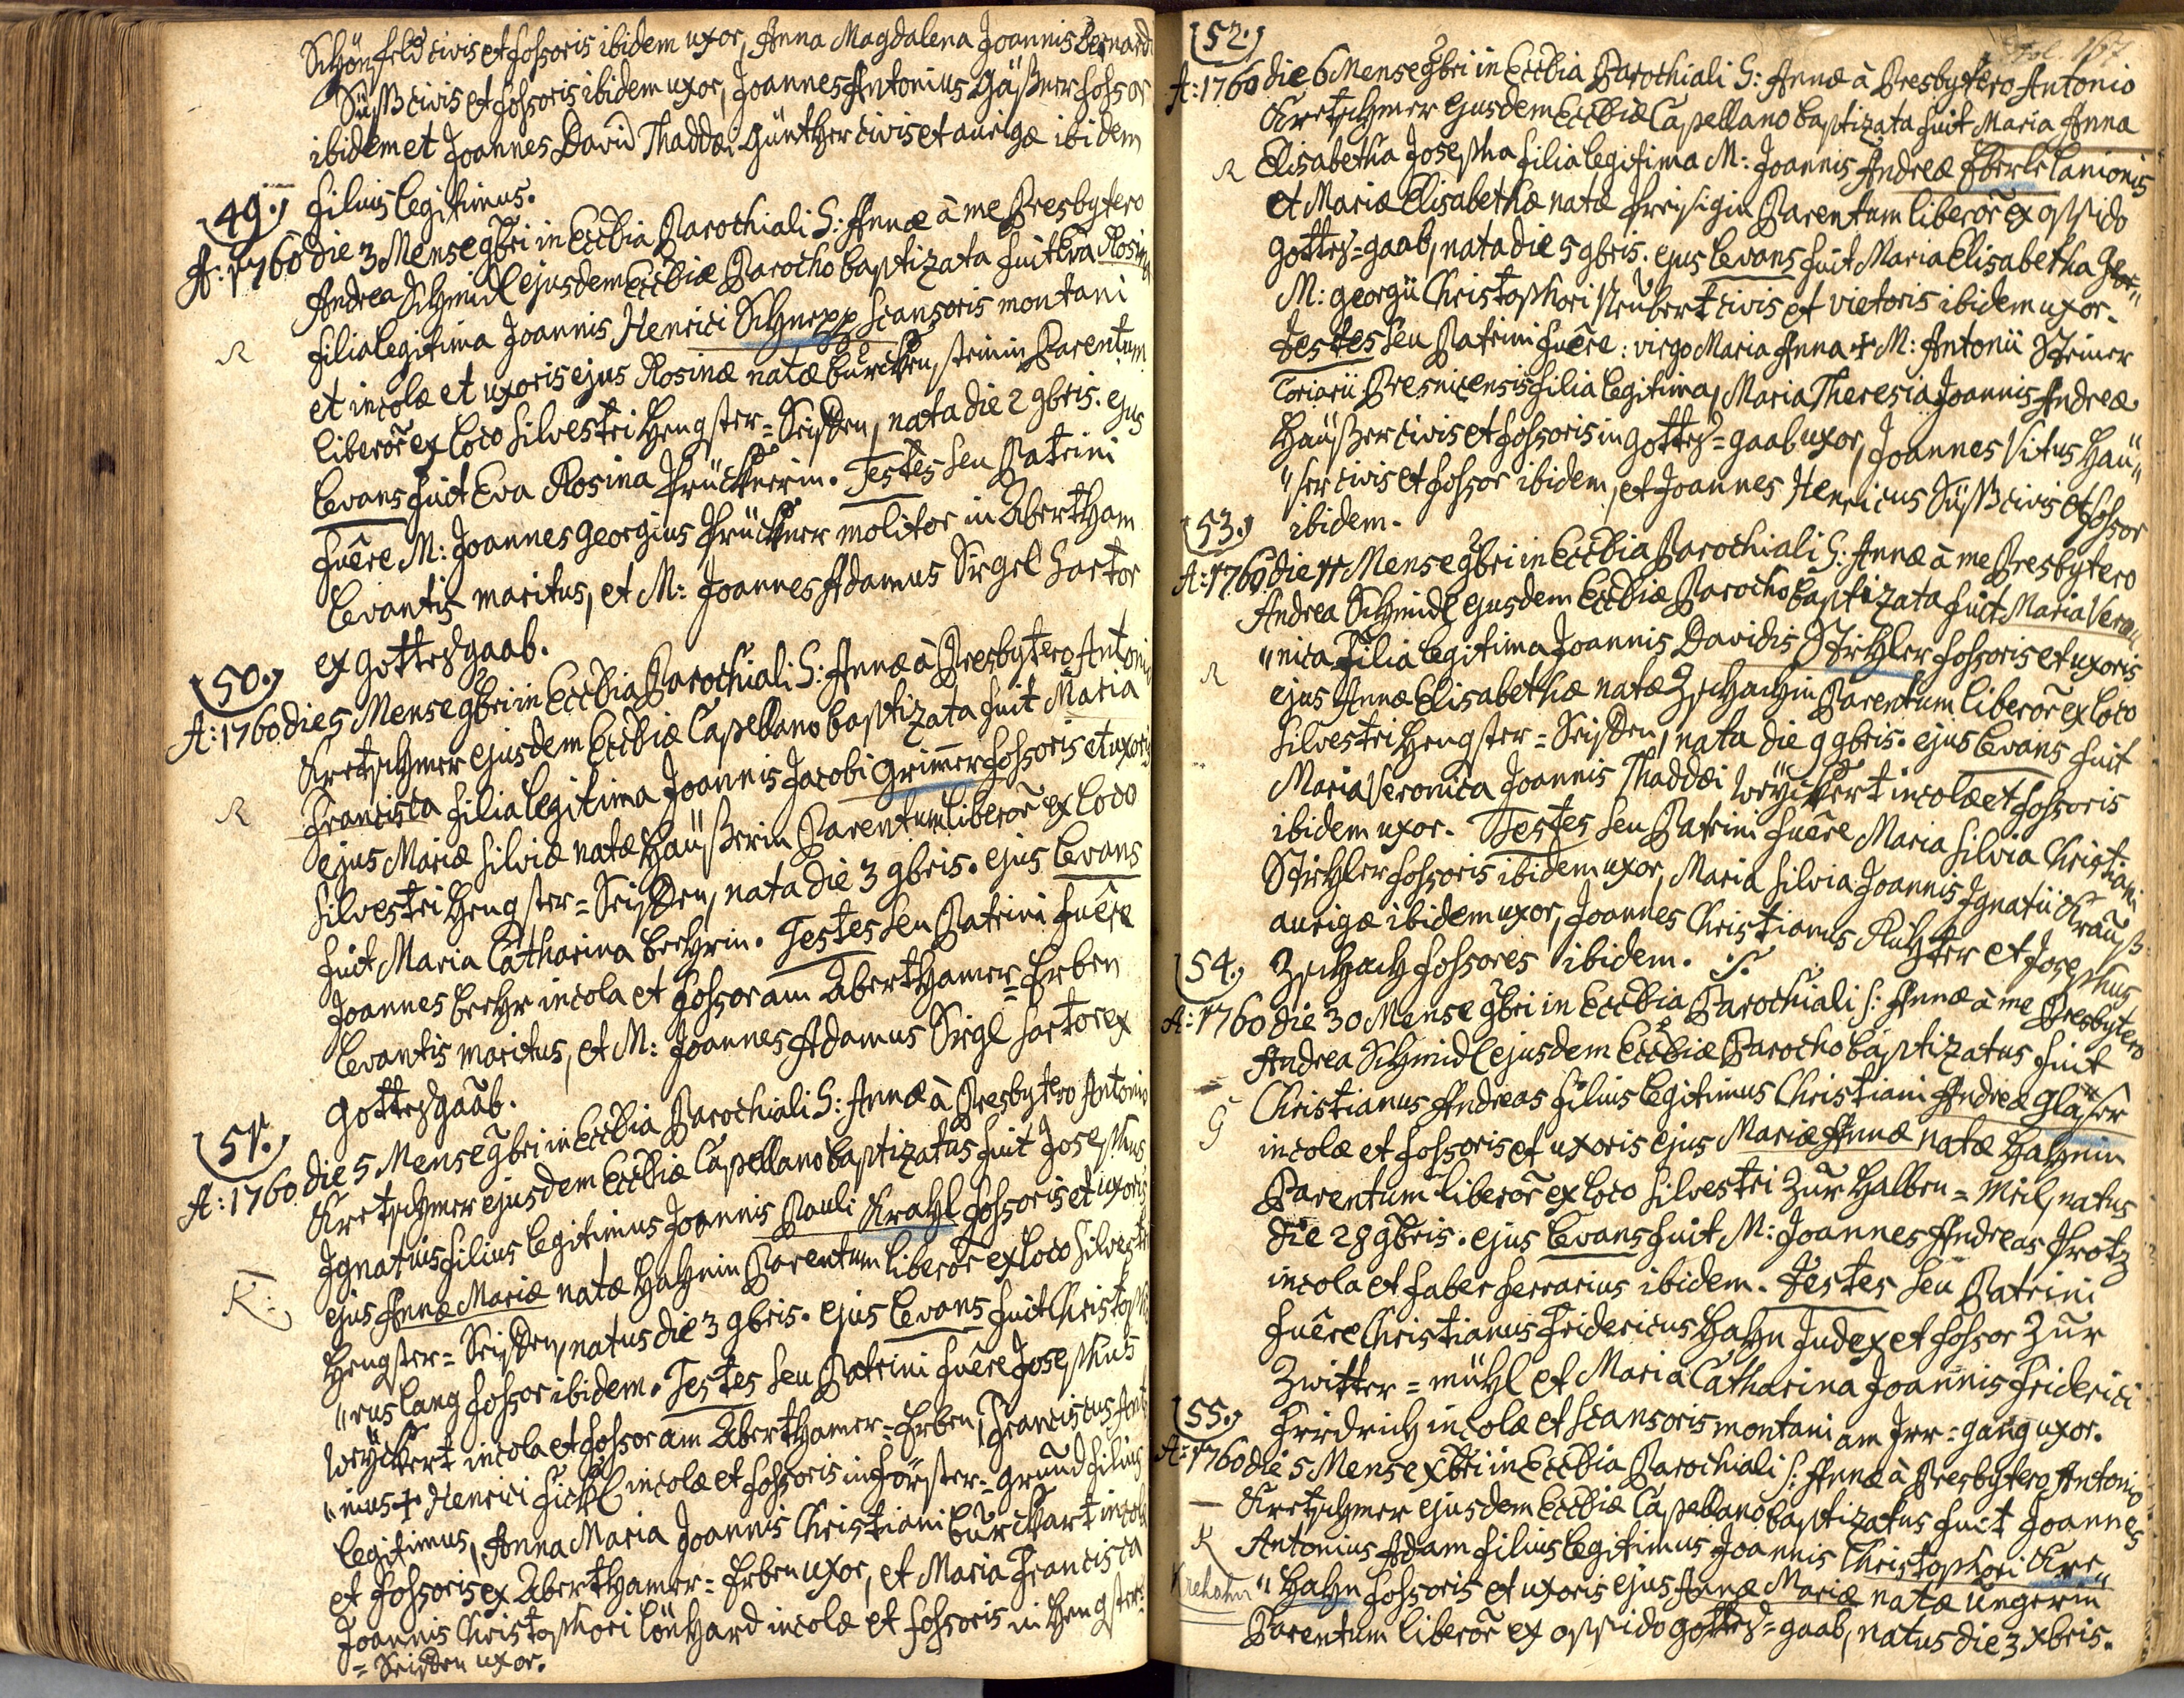 Schönfeld civis et fossoris ibidem uxor, Anna Magdalena Joannis Bernardi
Süß civis et fossoris ibidem uxor, Joannes Antonius Gäßner fossor
ibidem et Joannes David Thaddæi Günther civis et aurigæ ibidem
filius legitimus.
49.
A: 1760 die 3 Mense 9bri in Eccl̃ia Parochiali S: Annæ à me Presbytero
Andrea Schmidl ejusdem Eccl̃iæ Parocho baptizata fuit Eva Rosina
R
filia legitima Joannis Henrici Schnepp scansoris montani
et incolæ et uxoris ejus Rosinæ natæ Parentum
liberor̃ ex loco silvestri Hengster=Seiffen, nata die 2 9bris. ejus
levans fuit Eva Rosina Prücknerin. Testes seu Patrini
fuêre M: Joannes Georgius Prückner molitor in Abertham
levantis maritus, et M: Joannes Adamus Siegel sartor
ex Gottesgaab.
50.
A: 1760 die 5 Mense 9bri in Eccl̃ia Parochiali S: Annæ à Presbytero Antonio
Kretschmer ejusdem Eccl̃iæ Capellano baptizata fuit Maria
R
Francisca filia legitima Joannis Jacobi Grim̃er fossoris et uxoris
ejus Mariæ Silviæ natæ Haüßerin Parentum liberor̃ ex loco
silvestri Hengster=Seiffen, nata die 3 9bris. ejus levans
fuit Maria Catharina Lechrin. Testes seu Patrini fuêre
Joannes Lechr incola et fossor am Aberthamer=Erben
levantis maritus, et M: Joannes Adamus Siegl sartor ex
Gottesgaab.
51.
A: 1760 die 5 Mense 9bri in Eccl̃ia Parochiali S: Annæ à Presbytero Antonio
Kretschmer ejusdem Eccl̃iæ Capellano baptizatus fuit Josephus
Ignatius filius legitimus Joannis Pauli Krahl fossoris et uxoris
K:
ejus Annæ Mariæ natæ Hahnin Parentum liberor̃ ex loco silvestri
Hengster=Seiffen, natus die 3 9bris. ejus levans fuit Christopho
"rus Lang fossor ibidem. Testes seu Patrini fuêre Josephus
Weÿckert incola et fossor am Aberthamer=Erben, Franciscus Anto
"nius + Henrici Fickl incolæ et fossoris in Förster=Grund filius
legitimus, Anna Maria Joannis Christiani Burckhart incolæ
et fossoris ex Aberthamer=Erben uxor, et Maria Francisca
Joannis Christophori Lönhard incolæ et fossoris in Hengster=
=Seiffen uxor.
52.
Fol. 167
A: 1760 die 6 Mense 9bri in Eccl̃ia Parochiali S: Annæ à Presbytero Antonio
Kretschmer ejusdem Eccl̃iæ Capellano baptizata fuit Maria Anna
R
Elisabetha Josepha filia legitima M: Joannis Andreæ Eberle lanionis
et Mariæ Elisabethæ natæ Preisigin Parentum liberor̃ ex oppido
Gottes=gaab, nata die 5 9bris. ejus levans fuit Maria Elisabetha
M: Georgii Christophori Neubert civis et vietoris ibidem uxor.
Testes seu Patrini fuêre: virgo Maria Anna + M: Antonii Steiner
coriarii Presnicensis filia legitima, Maria Theresia Joannis Andreæ
Haüßer civis et fossoris in Gottes=gaab uxor, Joannes Vitus Haü"
"ser civis et fossor ibidem, et Joannes Henricus Süß civis et fossor
ibidem.
53.
A: 1760 die 11 Mense 9bri in Eccl̃ia Parochiali S: Annæ à me Presbytero
Andrea Schmidl ejusdem Eccl̃iæ Parocho baptizata fuit Maria Vero"
R
"nica filia legitima Joannis Davidis Stichler fossoris et uxoris
ejus Annæ Elisabethæ natæ Zschachin Parentum liberor̃ ex loco
silvestri Hengster=Seiffen, nata die 9 9bris. ejus levans fuit
Maria Veronica Joannis Thaddæi Weÿckert incolæ et fossoris
ibidem uxor. Testes seu Patrini fuêre Maria Silvia Christiani
Stichler fossoris ibidem uxor, Maria Silvia Joannis Ignatii Krauß
aurigæ ibidem uxor, Joannes Christianus Richter et Josephus
Zschach fossores ibidem.
54.
A: 1760 die 30 Mense 9bri in Eccl̃ia Parochiali S: Annæ à me Presbytero
Andrea Schmidl ejusdem Eccl̃iæ Parocho baptizatus fuit
G
Christianus Andreas filius legitimus Christiani Andreæ Gläser
incolæ et fossoris et uxoris ejus Mariæ Annæ natæ Hahnin
Parentum liberor̃ ex loco silvestri zur Halben=Meil, natus
die 28 9bris. ejus levans fuit M: Joannes Andreas Protz
incola et faber ferrarius ibidem. Testes seu Patrini
fuêre Christianus Fridericus Hahn Judex et fossor zur
Zwitter=mühl et Maria Catharina Joannis Friderici
Friedrich incolæ et scansoris montani am Irr=gang uxor.
55.
A: 1760 die 5 Mense Xbri in Eccl̃ia Parochiali S: Annæ à Presbytero Antonio
Kretschmer ejusdem Eccl̃iæ Capellano baptizatus fuit Joannes
K
Antonius Adam filius legitimus Joannis Christophori Kre"
Krehahn
"hahn fossoris et uxoris ejus Annæ Mariæ natæ Ungerin
Parentum liberor̃ ex oppido Gottes=gaab, natus die 3 Xbris.